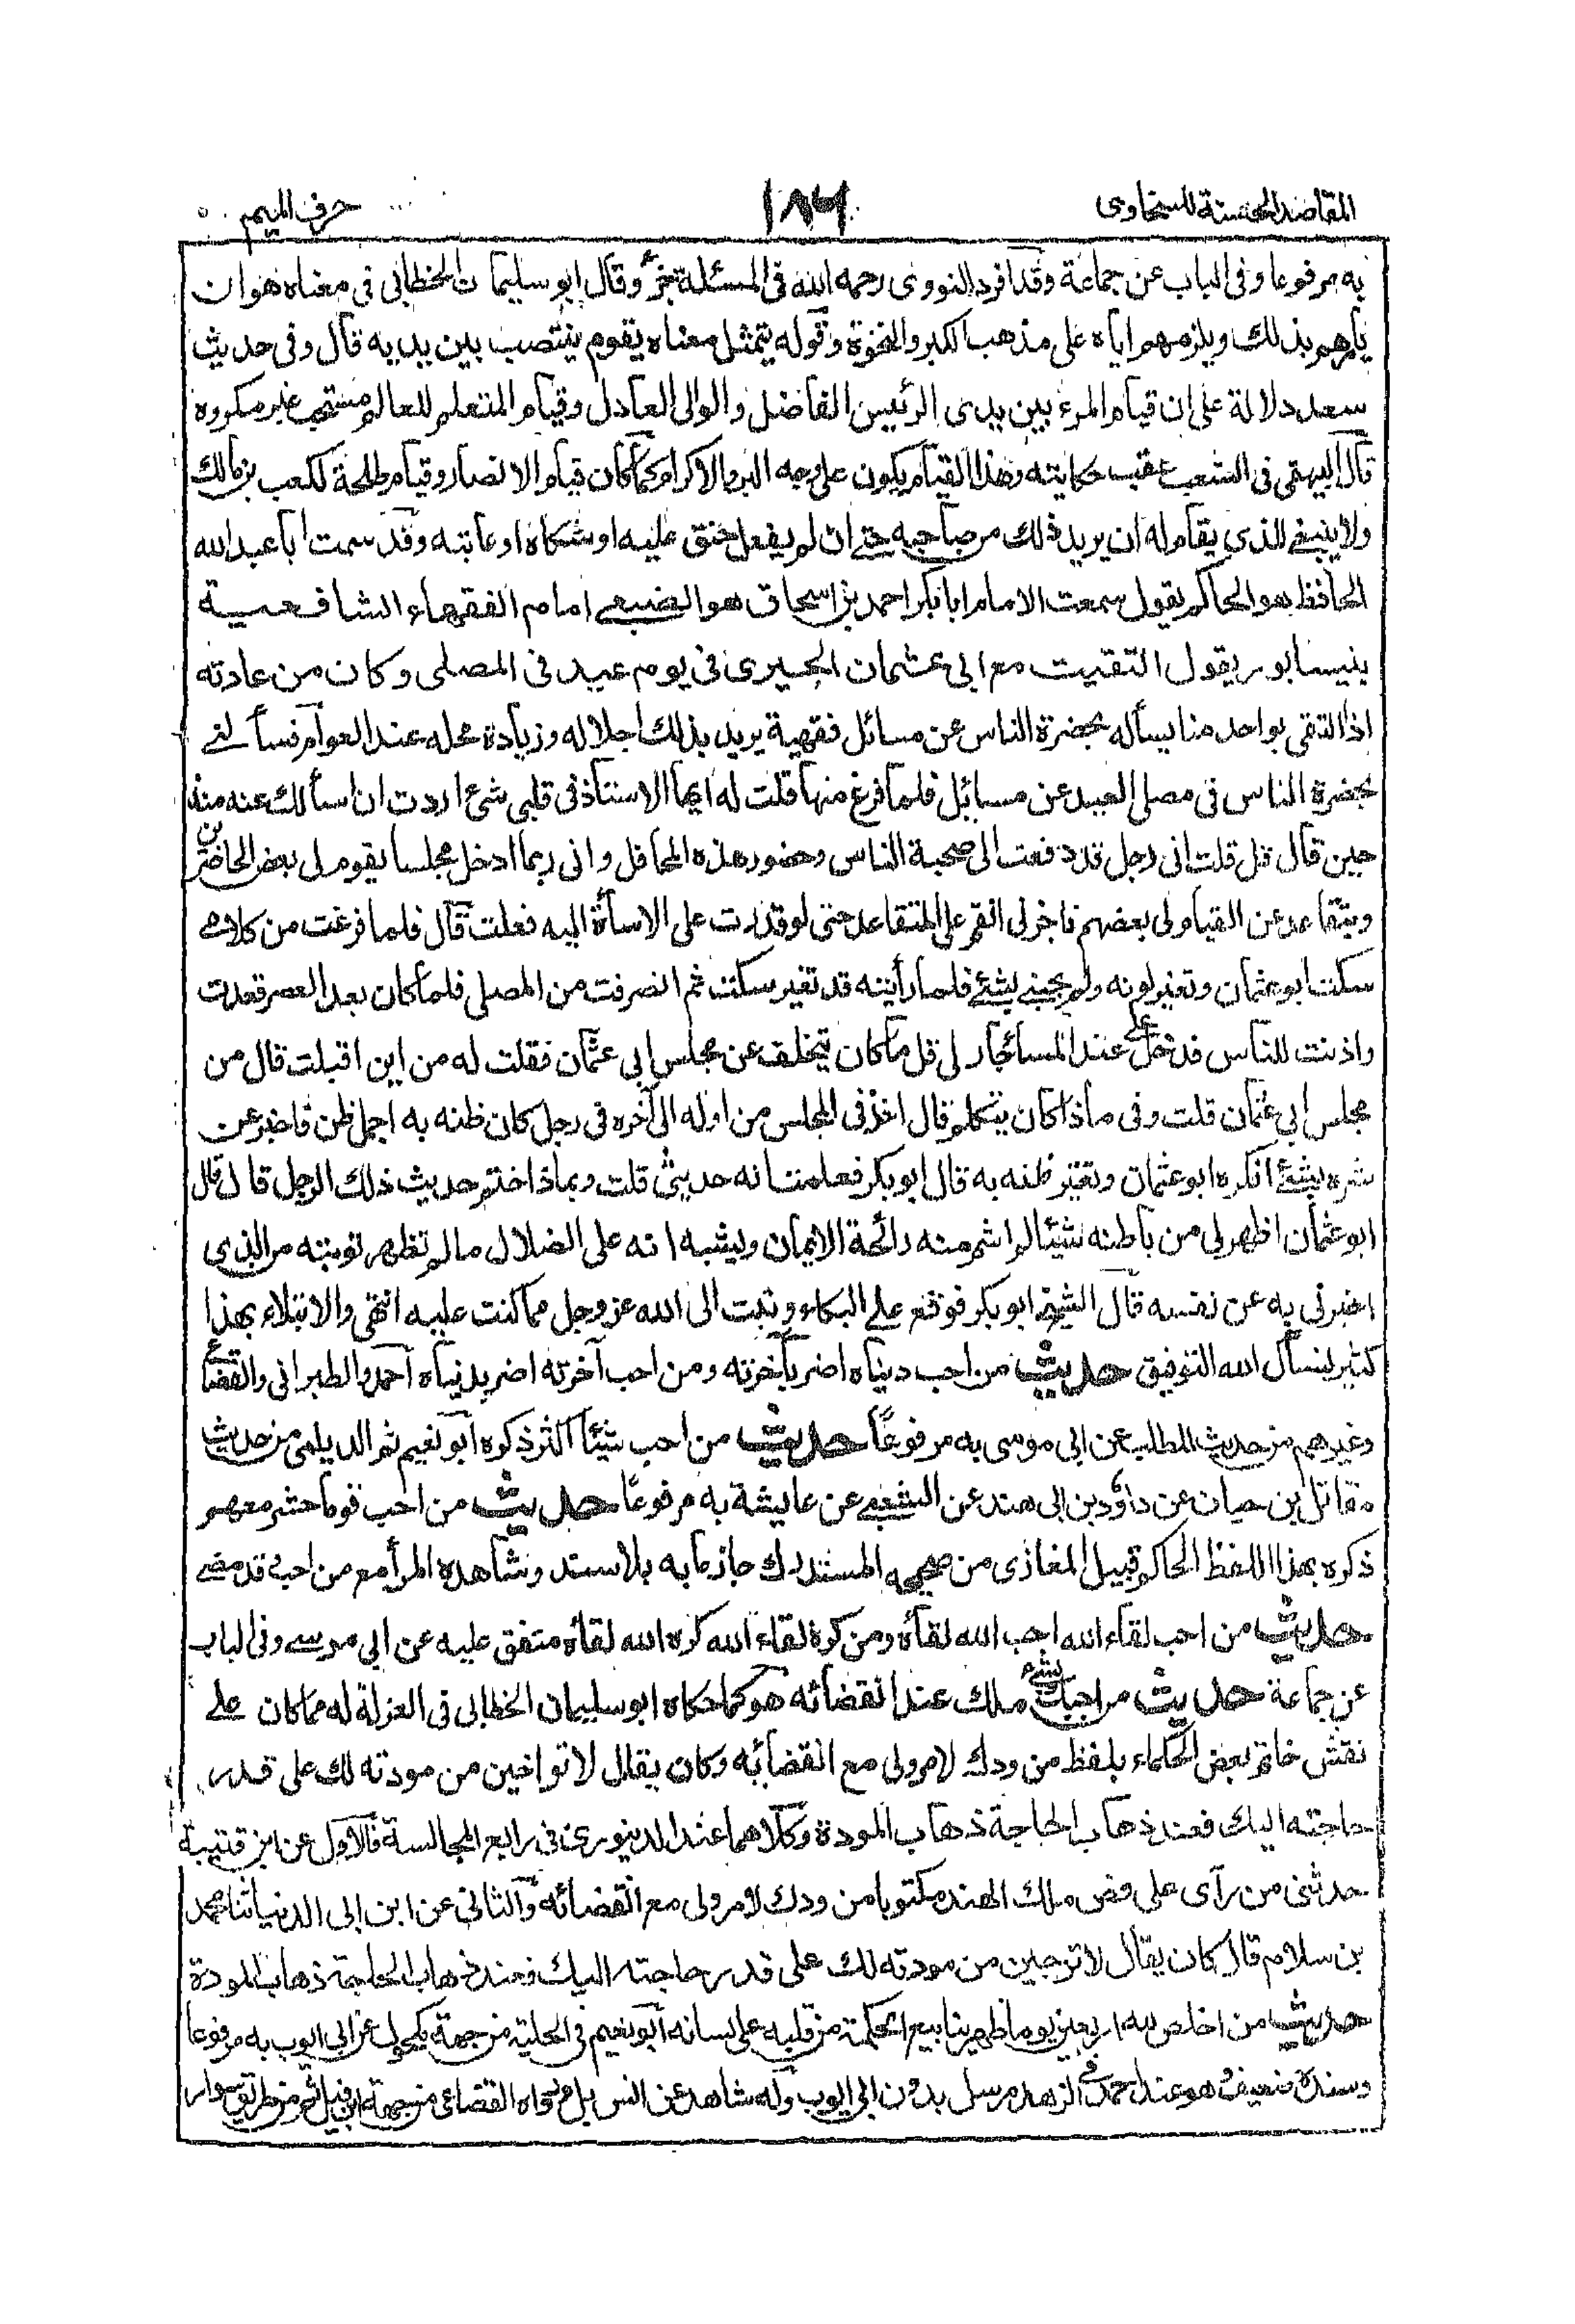 المقاصد الحسنة للسخاوى ١٨٦ حرف الميم
به مرفوعا وفى الباب عن جماعة وقد افرد النووى رحمه الله فى المسئلة جزء وقال ابو سليمان الخطابى فى معناه هو ان
يأمرهم بذلك ويلزمهم اياه على مذهب الكبر والنخوة وقوله يتمثل معناه يقوم ينتصب بين يديه قال وفى حديث
سعد دلالة على ان قيام المرء بين يدى الرئيس الفاضل والوالى العادل وقيام المتعلم للعالم مستحب غير مكروه
قال البيهقى فى الشعب عقب حكايته وهذا القيام يكون على وجه البر والاكرام كما كان قيام الانصار وقيام طلحة لكعب بن مالك
ولا ينبغى للذى يقام له ان يريد ذلك من صاحبه حتى ان لم يفعل حنق عليه او شكاه او عاتبه وقد سمعت ابا عبد الله
الحافظ هو الحاكم يقول سمعت الامام ابا بكر احمد بن اسحاق هو الضبعى امام الفقهاء الشافعية
بنيسابور يقول التقيت مع ابى عثمان الحيرى فى يوم عيد فى المصلى وكان من عادته
اذا التقى بواحد منا يسأله بحضرة الناس عن مسائل فقهية يريد بذلك اجلاله وزيادة محله عند العوام فسألنى
بحضرة الناس فى مصلى العيد عن مسائل فلما فرغ منها قلت له ايها الاستاذ فى قلبى شئ اردت ان اسألك عنه منذ
حين قال قل قلت انى رجل قد دفعت الى صحبة الناس وحضور هذه المحافل وانى ربما ادخل مجلسا يقوم لى بعض الحاضرين
ويتقاعد عن القيام لى بعضهم فاجدنى انقم على المتقاعد حتى لو قدرت على الاسأة اليه فعلت قال فلما فرغت من كلامى
سكت ابو عثمان وتغير لونه ولم يجبنى بشئ فلما رأيته قد تغير سكت ثم انصرفت من المصلى فلما كان بعد العصر قعدت
واذنت للناس فدخل على عند المسأ جار لى قل ما كان يتخلف عن مجلس ابى عثمان فقلت له من اين اقبلت قال من
مجلس ابى عثمان قلت وفى ماذا كان يتكلم قال اخذ فى المجلس من اوله الى آخره فى رجل كان ظنه به اجمل ظن فاخبر عن
سره بشئ انكره ابو عثمان وتغير ظنه به قال ابو بكر فعلمت انه حديثى قلت وبماذا ختم حديث ذلك الرجل قال قال
ابو عثمان اظهر لى من باطنه شيئا لم اشم منه رائحة الايمان ويشبه انه على الضلال ما لم تظهر توبته من الذى
اخبرنى به عن نفسه قال الشيخ ابو بكر فوقع على البكاء وتبت الى الله عز وجل مما كنت عليه انتهى والابتلاء بهذا
كثير لنسأل الله التوفيق حديث من احب دنياه اضر بآخرته ومن احب آخرته اضر بدنياه احمد والطبرانى والقضاعى
وغيرهم من حديث المطلب عن ابى موسى به مرفوعًا حديث من احب شيئا اكثر ذكره ابو نعيم ثم الديلمى من حديث
مقاتل بن حيان عن داؤد بن ابى هند عن الشعبى عن عايشة به مرفوعًا حديث من احب قوما حشر معهم
ذكره بهذا اللفظ الحاكم قبيل المغازى من صحيحه المستدرك جازما به بلا سند وشاهده المرأ مع من احب قد مضى
حديث من احب لقاء الله احب الله لقأه ومن كره لقاء الله كره الله لقأه متفق عليه عن ابى موسى وفى الباب
عن جماعة حديث من احبك لشئ ملك عند انقضائه هو كما حكاه ابو سليمان الخطابى فى العزلة له مما كان على
نقش خاتم بعض الحكماء بلفظ من ودك لامر ولى مع انقضائه وكان يقال لا تواخين من مودته لك على قدر
حاجته اليك فعند ذهاب الحاجة ذهاب المودة وكلاهما عند الدينورى فى رابع المجالسة فالاول عن ابن قتيبة
حدثنى من رآى على فص ملك الهند مكتوبا من ودك لامر ولى مع انقضائه والثانى عن ابن ابى الدنيا ثنا محمد
بن سلام قال كان يقال لا ترجين من مودته لك على قدر حاجته اليك فعند ذهاب الحاجة ذهاب المودة
حديث من اخلص لله اربعين يوما ظهر ينابيع الحكمة من قلبه على لسانه ابو نعيم فى الحلية من جهة مكحول عن ابى ايوب به مرفوعا
وسنده ضعيف وهو عند احمد فى الزهد مرسل بدون ابى ايوب وله شاهد عن انس بل رواه القضاعى من جهة ابن فيل ثم من طريق سوار